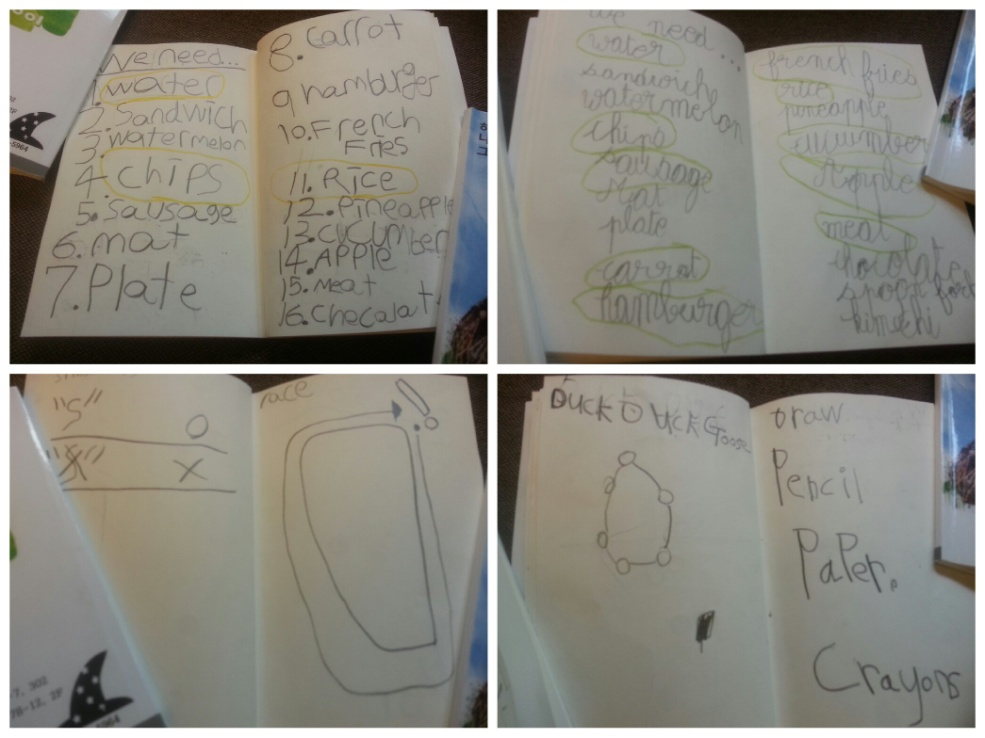 We need...
1. water
2. Sandwich
3. watermelon
4. Chips
5. Sausage
6. mat
7. Plate
8. Carrot
9 hamburger
10. French
Fries
11. Rice
12. Pineapple
13. Cucumber
14. APPLE
15. Meat
16. Checolat
-5964
we need...
water
sandwich
watermelon
chips
sausage
mat
plate
carrot
hamburger
french fries
rice
pineapple
cucumber
Apple
meat
chocolate
spoon fork
kimchi
"S"
O
X
race
7, 302
78-12, 2F
-5964
Duck Duck Goose
Draw
Pencil
PaPer.
Crayons